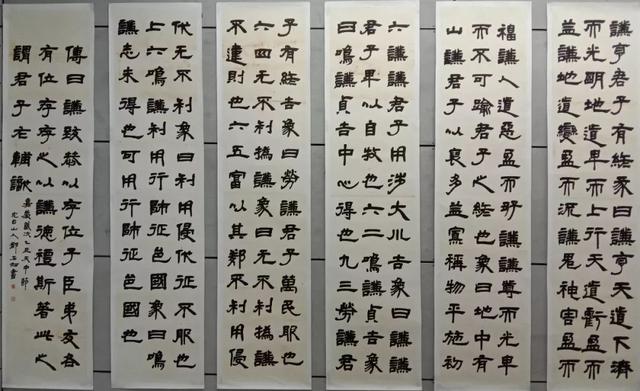 謙亨君子有終彖曰謙亨天道下濟
而光明地道卑而上行天道虧盈而
益謙地道變盈而流謙鬼神害盈而
福謙人道惡盈而好謙謙尊而光卑
而不可踰君子之終也象曰地中有
山謙君子以裒多益寡稱物平施初
六謙謙君子用涉大川吉象曰謙謙
君子卑以自牧也六二鳴謙貞吉象
曰鳴謙貞吉中心得也九三勞謙君
子有終吉象曰勞謙君子萬民服也
六四无不利撝謙象曰无不利撝謙
不違則也六五富以其鄰不利用侵
伐无不利象曰利用侵伐征不服也
上六鳴謙利用行師征邑國象曰鳴
謙志未得也可用行師征邑國也
傳曰謙致恭以存位子臣弟友各
有位存存之以謙德禮斯著此之
謂君子左輔歌
嘉慶歲次乙丑天中節
完白山人鄧石如書